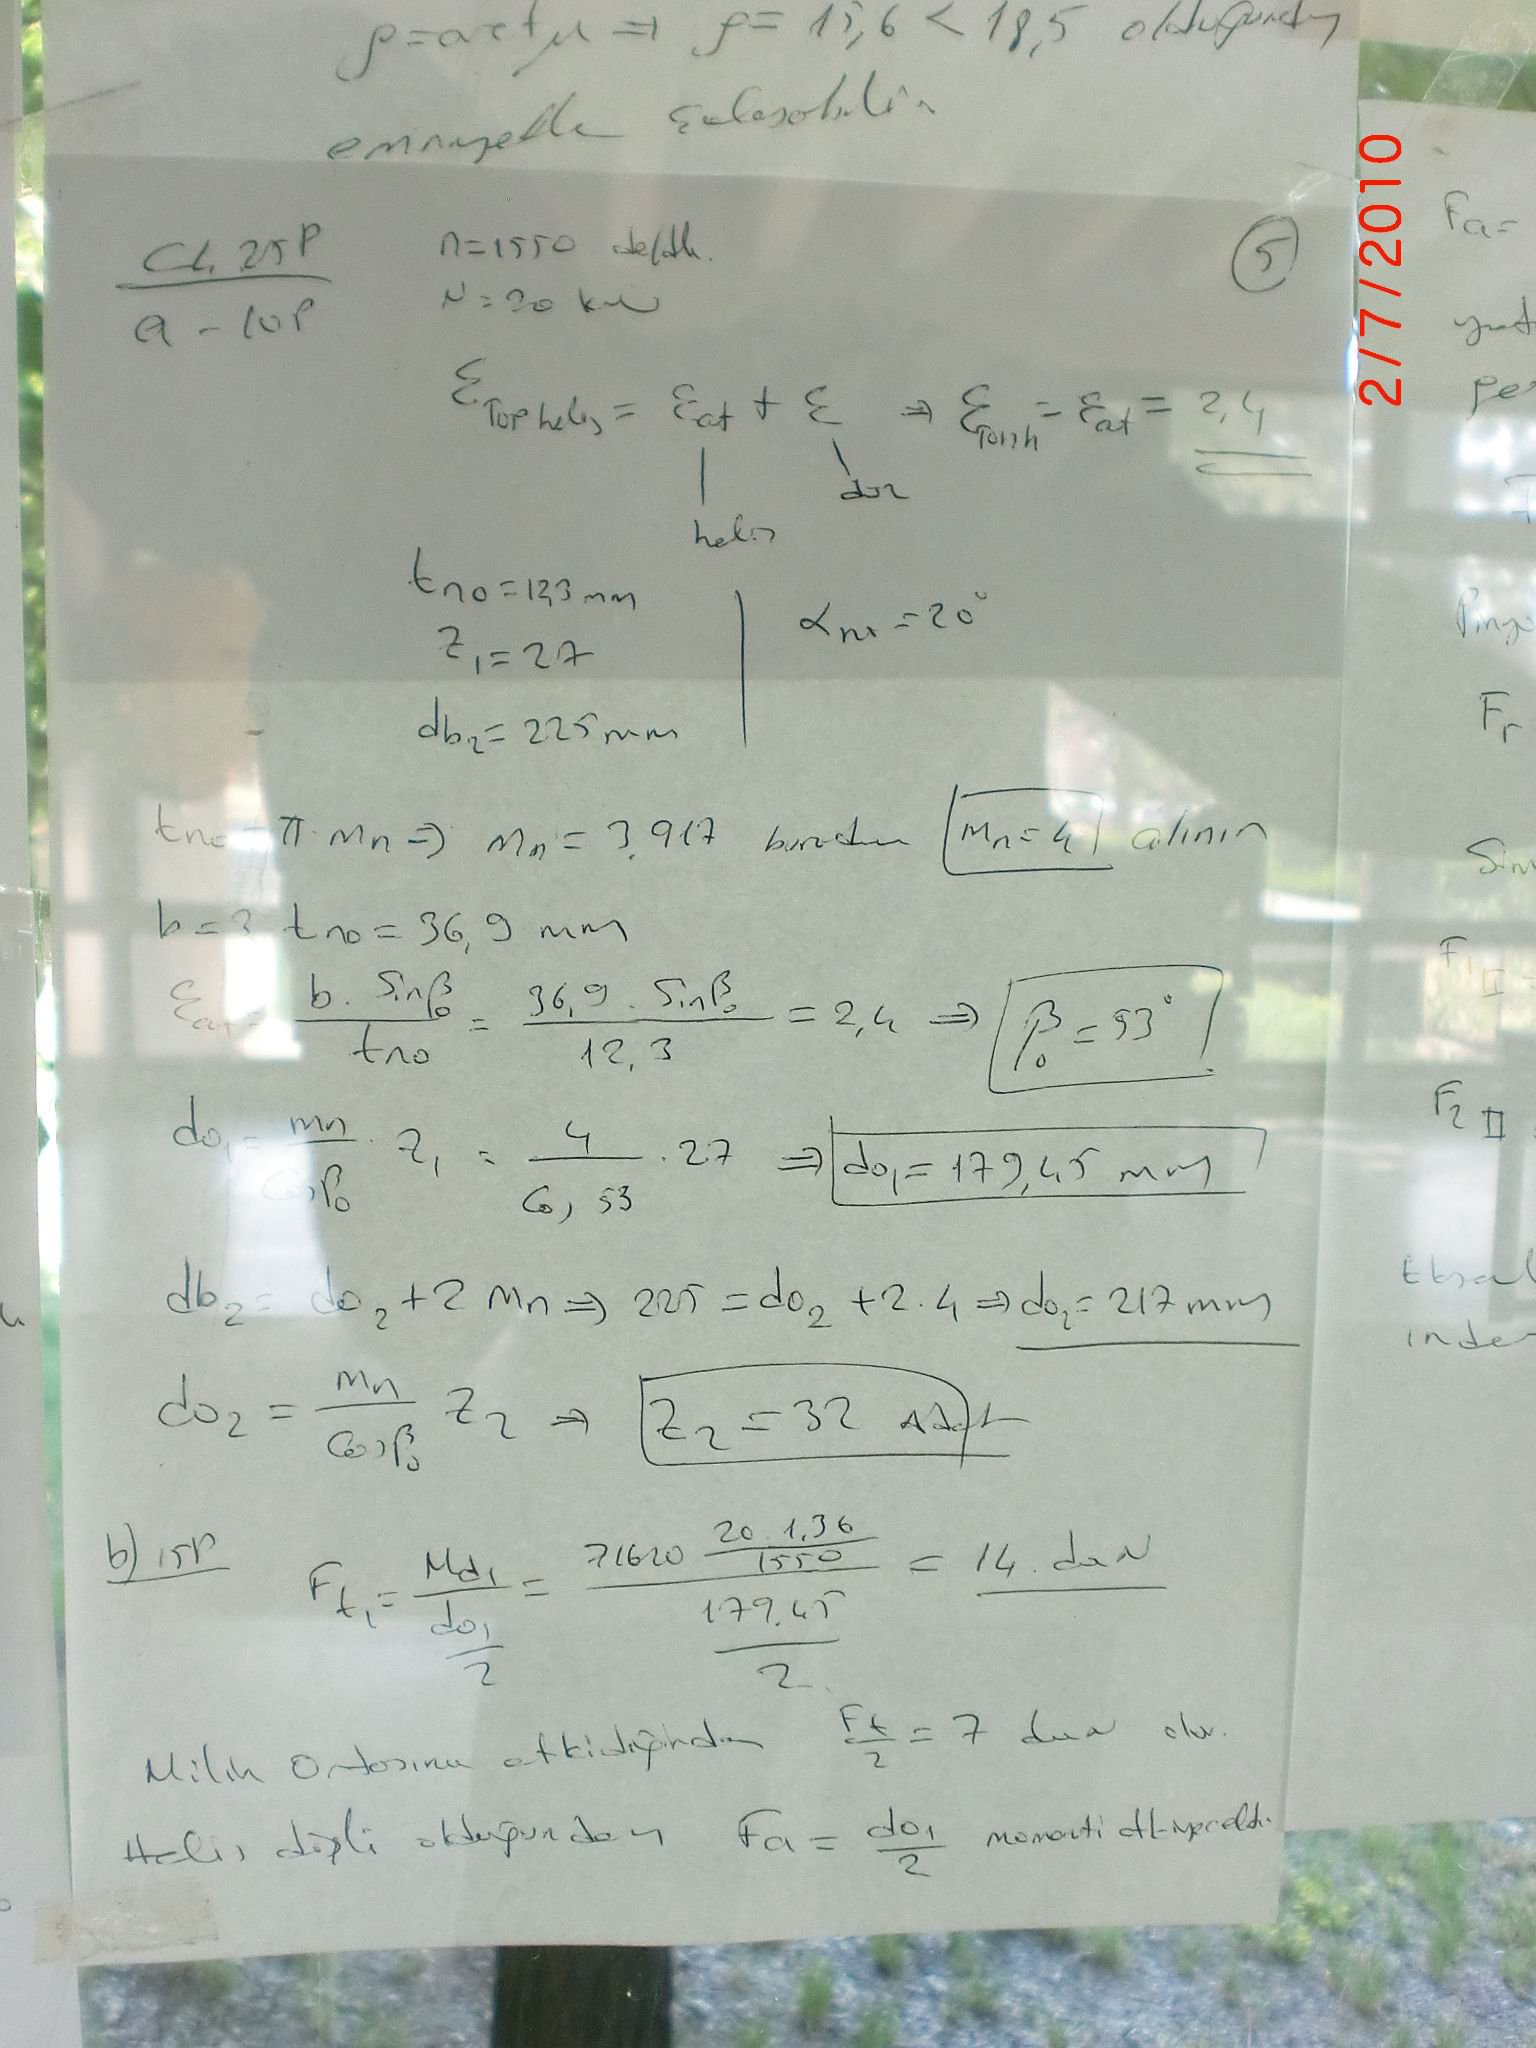 ρ=arctμ ⇒ ρ= 15,6 < 18,5 olduğundan
emniyetle çalışabilir
2/7/2010
C4. 25P
a - 10P
n=1550 de/dk.
N=20 kW
5
ε_Top helis = ε_at + ε ⇒ ε_Top,h = ε_at = 2,4
helis
düz
t_n0 = 12,3 mm
Z_1 = 27
d_b2 = 225 mm
α_n0 = 20°
t_n0 = π. m_n ⇒ m_n = 3.917 buradan m_n = 4 alınır
b = 3 t_n0 = 36,9 mm
ε_at = b. Sinβ_0 / t_n0 = 36,9. Sinβ_0 / 12,3 = 2,4 ⇒ β_0 = 53°
d_01 = m_n / Cosβ_0 . Z_1 = 4 / Cos 53 . 27 ⇒ d_01 = 179,45 mm
d_b2 = d_02 + 2 m_n ⇒ 225 = d_02 + 2.4 ⇒ d_02 = 217 mm
d_02 = m_n / Cosβ_0 Z_2 ⇒ Z_2 = 32
b) 15P
F_t1 = M_d1 / (d_01 / 2) = 71620 (20.1,36 / 1550) / (179.45 / 2) = 14. daN
Milin Ortasına etkidiğinden F_t / 2 = 7 daN olur.
Helis dişli olduğundan F_a = d_01 / 2 momenti
F_a =
Pinyo
F_r
Sin
F_1 II
F_2 II